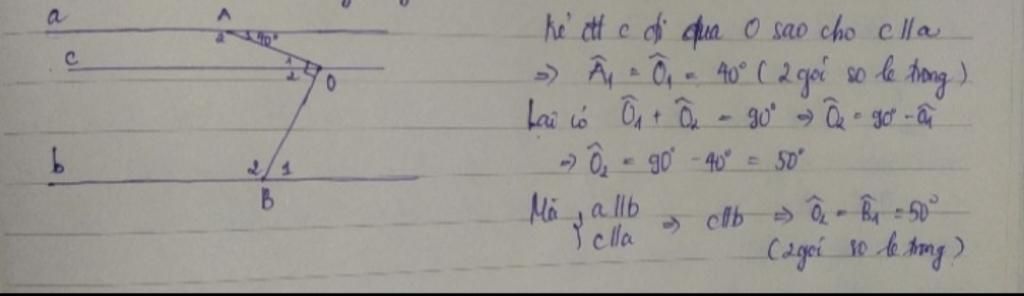 a A
2 1 40°
c 1
2 O
b 2 1
B
Kẻ đt c đi qua O sao cho c//a
=> Â1 = Ô1 = 40° (2 góc so le trong)
Lại có Ô1 + Ô2 = 90° => Ô2 = 90° - Ô1
=> Ô2 = 90° - 40° = 50°
Mà { a//b
c//a => c//b => Ô2 = B̂1 = 50°
(2 góc so le trong)